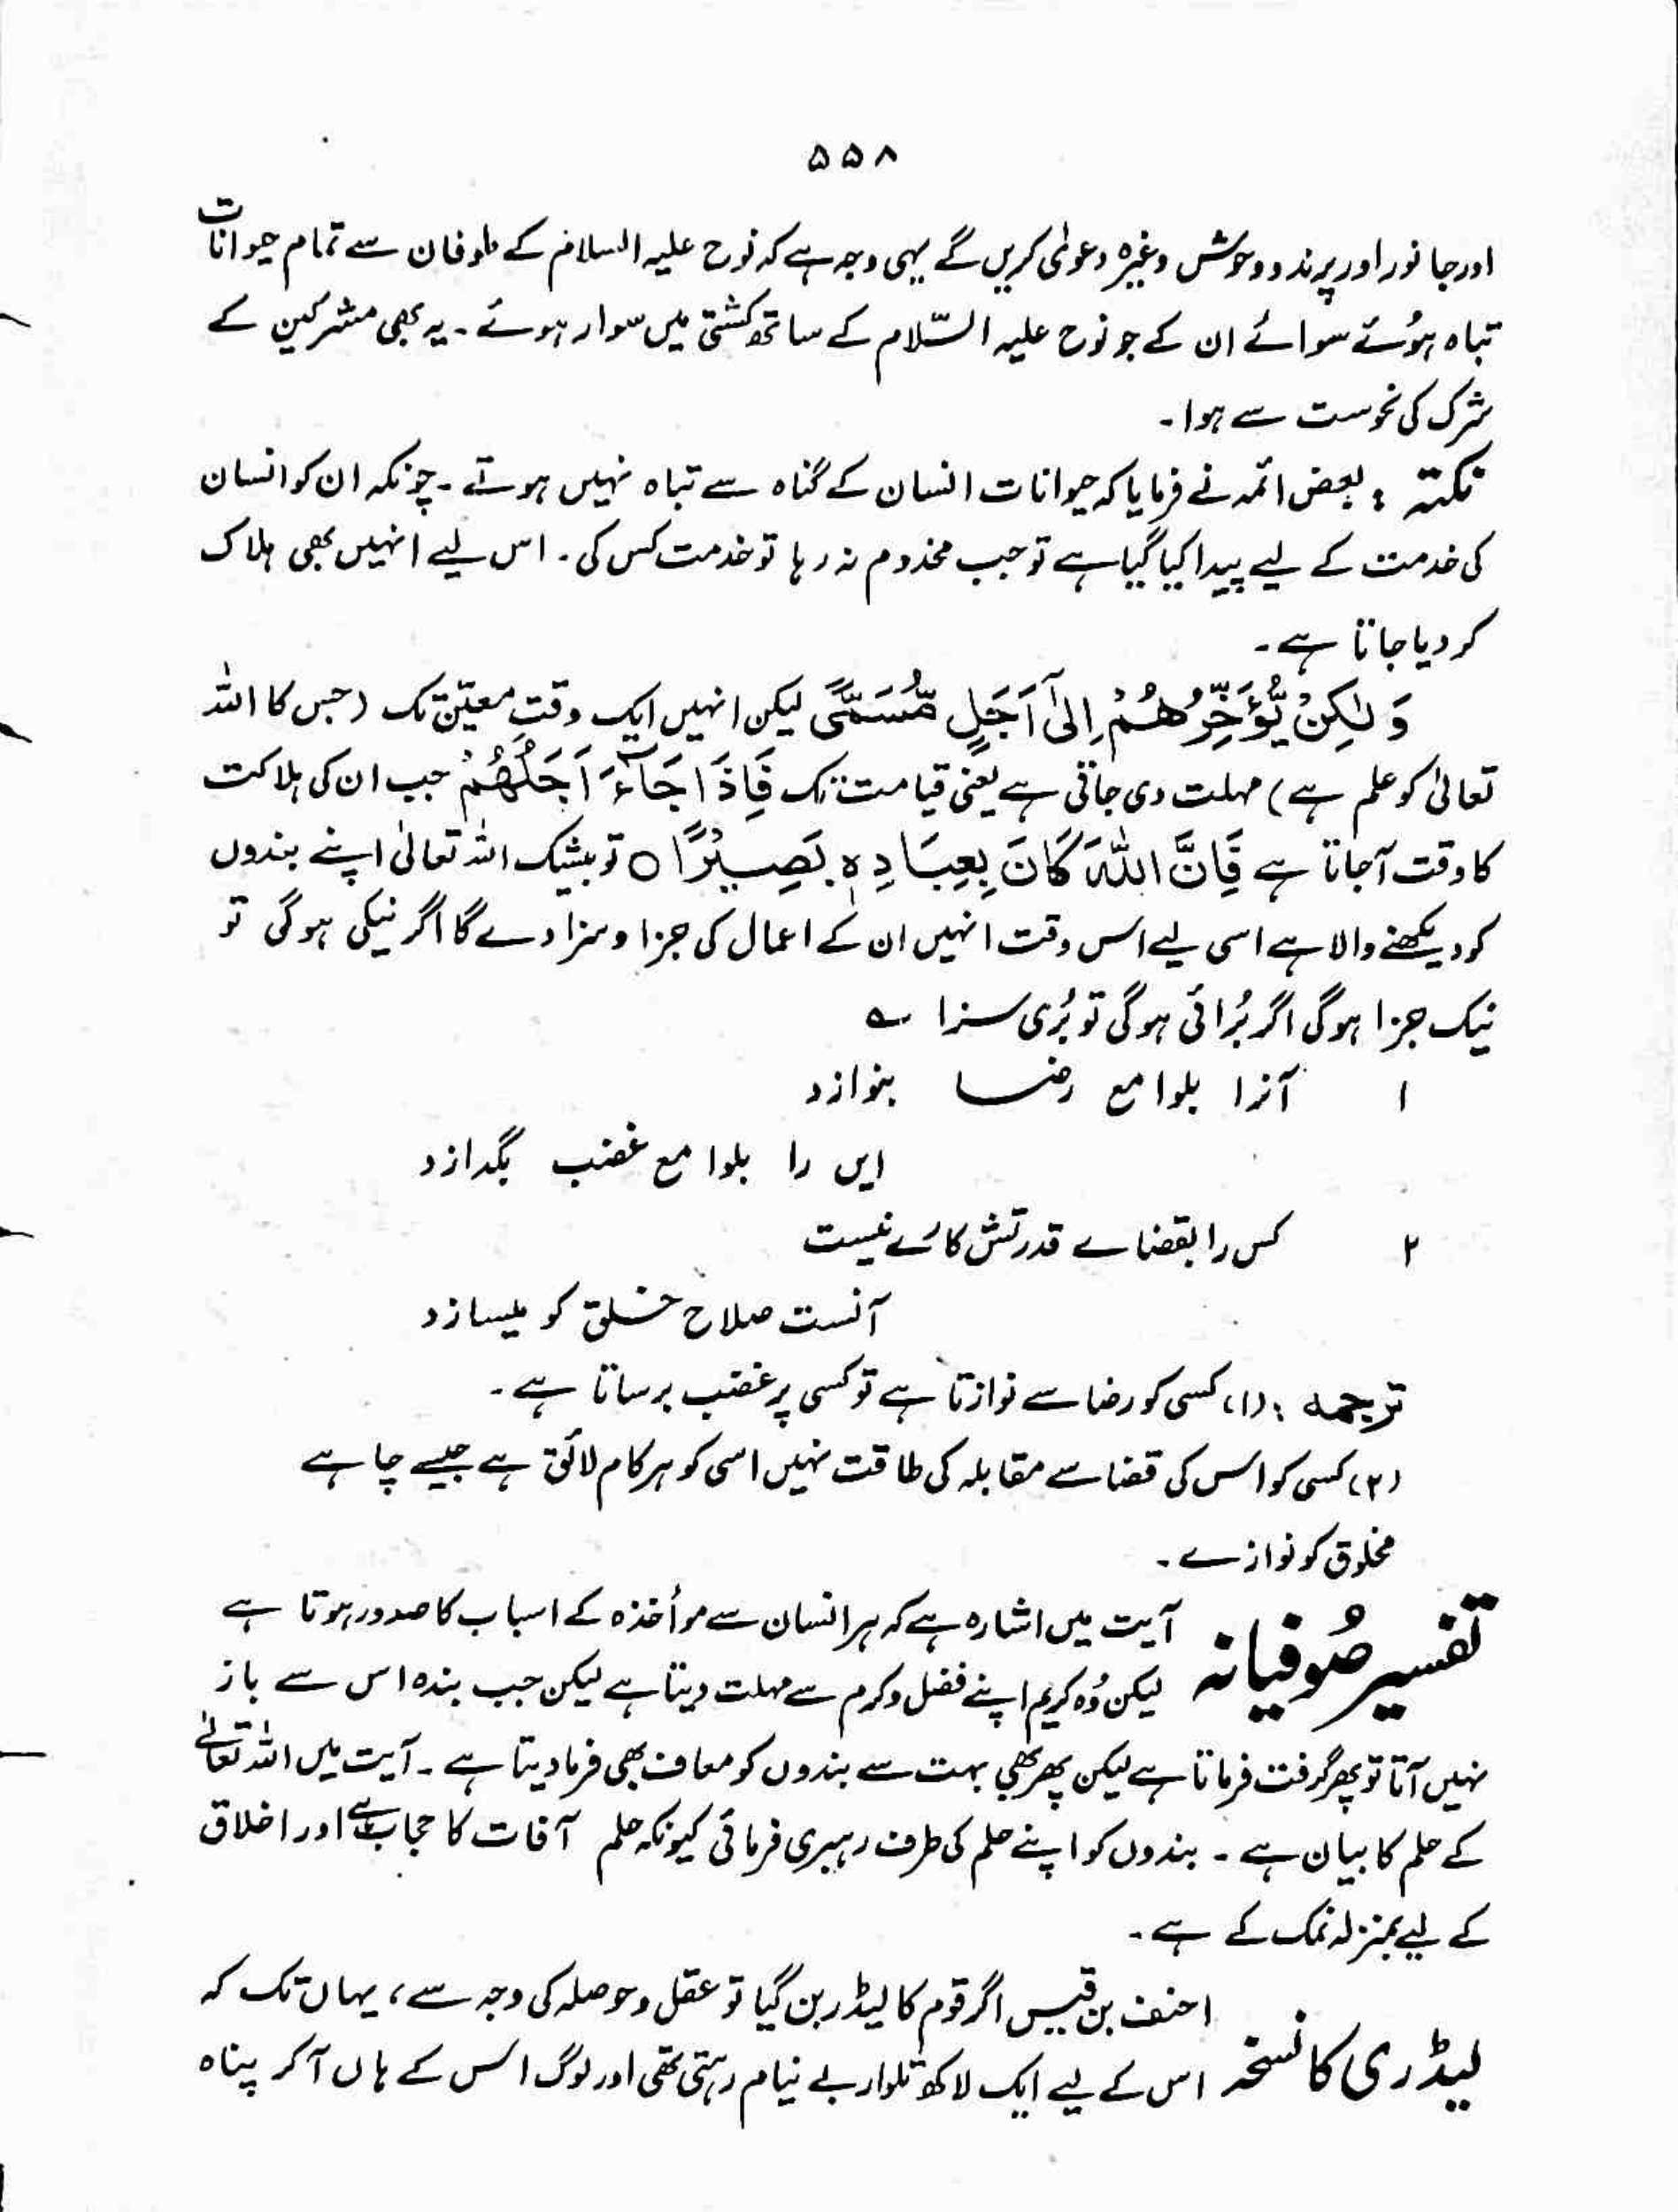 ۵۵۸
اور جانور اور پرند و وحوش وغیرہ دعوٰی کریں گے یہی وجہ ہے کہ نوح علیہ السلام کے طوفان سے تمام حیوانات
تباہ ہوُئے سوائے ان کے جو نوح علیہ السّلام کے ساتھ کشتی میں سوار ہوئے۔ یہ بھی مشرکین کے
شرک کی نحوست سے ہوا۔
نکتہ : بعض ائمہ نے فرمایا کہ حیوانات انسان کے گناہ سے تباہ نہیں ہوتے۔ چونکہ ان کو انسان
کی خدمت کے لیے پیدا کیا گیا ہے تو جب مخدوم نہ رہا تو خدمت کس کی۔ اس لیے انہیں بھی ہلاک
کر دیا جاتا ہے۔
وَلٰکِنْ یُّؤَخِّرُھُمْ اِلٰٓی اَجَلٍ مُّسَمًّی لیکن انہیں ایک وقتِ معیّن تک (جس کا اللہ
تعالیٰ کو علم ہے) مہلت دی جاتی ہے یعنی قیامت تک فَاِذَا جَآءَ اَجَلُھُمْ جب ان کی ہلاکت
کا وقت آجاتا ہے فَاِنَّ اللّٰہَ کَانَ بِعِبَادِہٖ بَصِیْرًا ○ تو بیشک اللہ تعالیٰ اپنے بندوں
کو دیکھنے والا ہے اسی لیے اس وقت انہیں ان کے اعمال کی جزا و سزا دے گا اگر نیکی ہوگی تو
نیک جزا ہوگی اگر بُرائی ہوگی تو بُری سزا ؎
۱ آنرا بلوامع رضا بنوازد
ایں را بلوامع غضب بگدازد
۲ کس را بقضاے قدرتش کارے نیست
آنست صلاح خلق کو میسازد
ترجمہ : (۱) کسی کو رضا سے نوازتا ہے تو کسی پر غضب برساتا ہے۔
(۲) کسی کو اس کی قضا سے مقابلہ کی طاقت نہیں اسی کو ہر کام لائق ہے جیسے چاہے
مخلوق کو نوازے۔
تفسیر صُوفیانہ آیت میں اشارہ ہے کہ ہر انسان سے مواٴخذہ کے اسباب کا صدور ہوتا ہے
لیکن وُہ کریم اپنے فضل و کرم سے مہلت دیتا ہے لیکن جب بندہ اس سے باز
نہیں آتا تو پھر گرفت فرماتا ہے لیکن پھر بھی بہت سے بندوں کو معاف بھی فرما دیتا ہے۔ آیت میں اللہ تعالیٰ
کے حلم کا بیان ہے۔ بندوں کو اپنے حلم کی طرف رہبری فرمائی کیونکہ حلم آفات کا حجاب ہے اور اخلاق
کے لیے بمنزلہ نمک کے ہے۔
لیڈری کا نسخہ احنف بن قیس اگر قوم کا لیڈر بن گیا تو عقل و حوصلہ کی وجہ سے، یہاں تک کہ
اس کے لیے ایک لاکھ تلوار بے نیام رہتی تھی اور لوگ اس کے ہاں آ کر پناہ